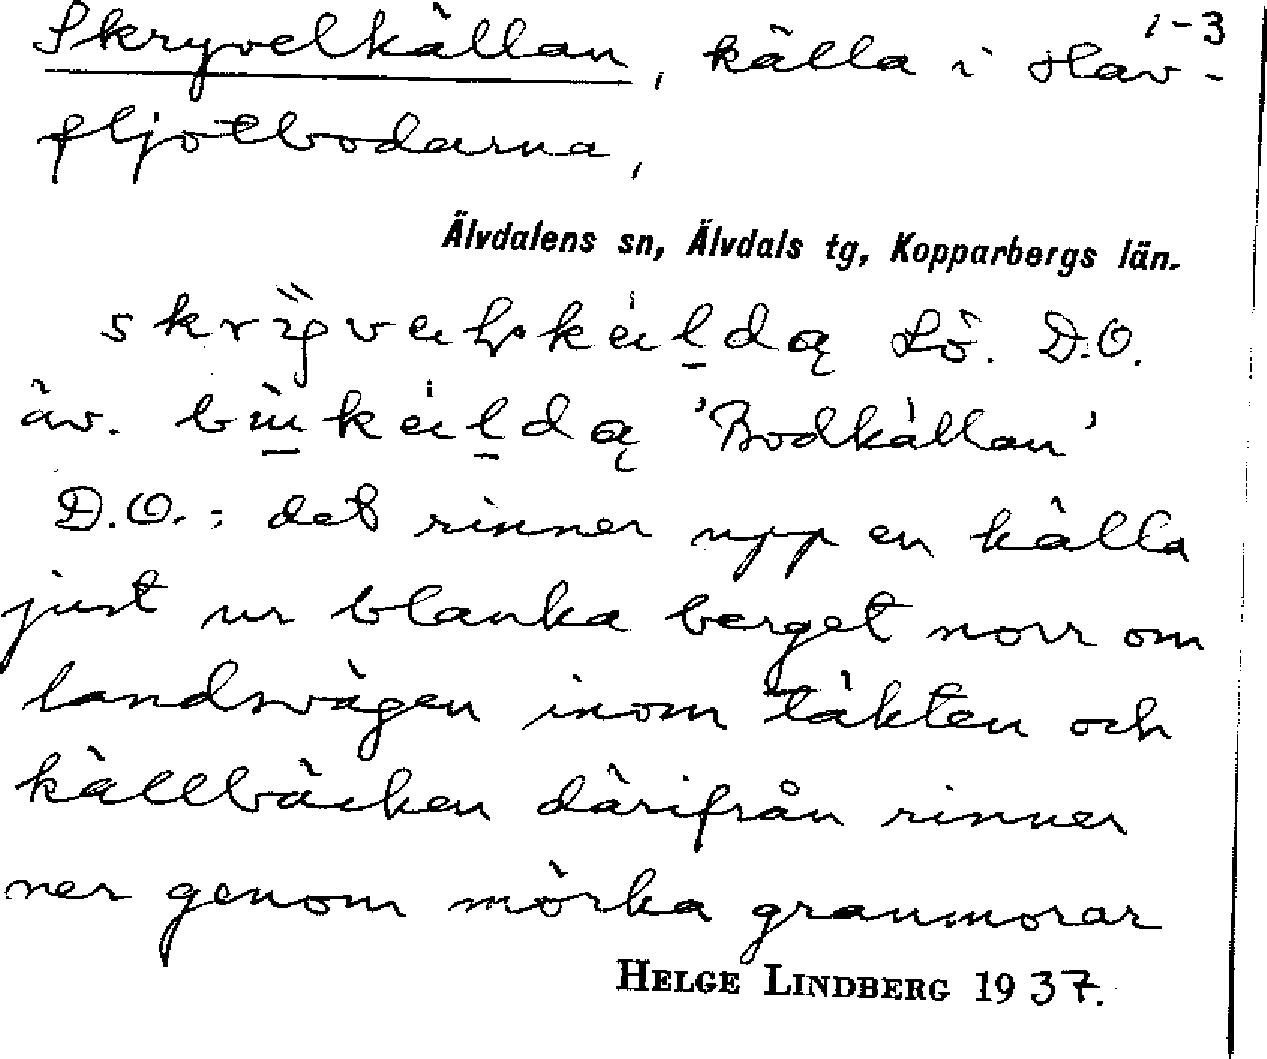 1-3
Skryvelkällan, källa i Hav-
fljotbodarna,
Älvdalens sn, Älvdals tg, Kopparbergs län.
Lö. D.O.
äv. 'Bodkällan'
D.O.: det rinner upp en källa
just ur blanka berget norr om
landsvägen inom täkten och
källbäcken därifrån rinner
ner genom mörka granmorar
HELGE LINDBERG 1937.